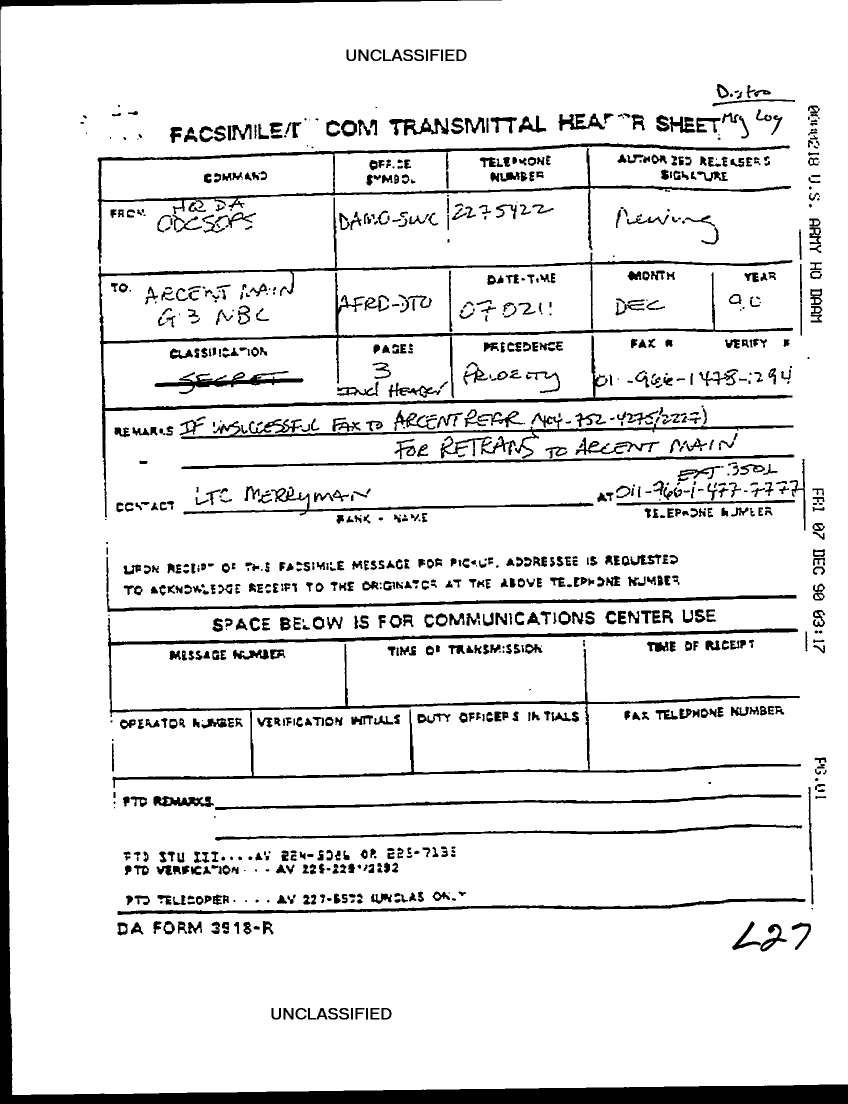 UNCLASSIFIED
Distro
Msg Log
FACSIMILE/ COM TRANSMITTAL HEADER SHEET
COMMAND
OFFICE SYMBOL
TELEPHONE NUMBER
AUTHORIZED RELEASERS SIGNATURE
FROM HQ DA
ODCSOPS
DAMO-SWC
2275422
TO. ARCENT MAIN
G3 NBC
AFRD-DTO
DATE-TIME
MONTH
DEC
YEAR
90
CLASSIFICATION
SECRET
PAGES
3
Incl Header
PRECEDENCE
PRIORITY
FAX # VERIFY #
REMARKS IF UNSUCCESSFUL FAX TO ARCENT REAR 404-752-4275/2227)
FOR RETRANS TO ARCENT MAIN
EXT 3501
CONTACT LTC MERRYMAN AT 011-966-1-477-7777
RANK - NAME
TELEPHONE NUMBER
UPON RECEIPT OF THIS FACSIMILE MESSAGE FOR PICKUP, ADDRESSEE IS REQUESTED
TO ACKNOWLEDGE RECEIPT TO THE ORIGINATOR AT THE ABOVE TELEPHONE NUMBER
SPACE BELOW IS FOR COMMUNICATIONS CENTER USE
MESSAGE NUMBER
TIME OF TRANSMISSION
TIME OF RECEIPT
OPERATOR NUMBER
VERIFICATION INITIALS
DUTY OFFICERS INITIALS
FAX TELEPHONE NUMBER
PTD REMARKS
PTD STU III....AV 224-5086 OR 225-7135
PTD VERIFICATION - - - AV
PTD TELECOPIER - - - - AV 227-6572 (UNCLAS ONLY
DA FORM 3918-R
L27
UNCLASSIFIED
U.S. ARMY HQ DAAM
FRI 07 DEC 90 03:17
PG.01